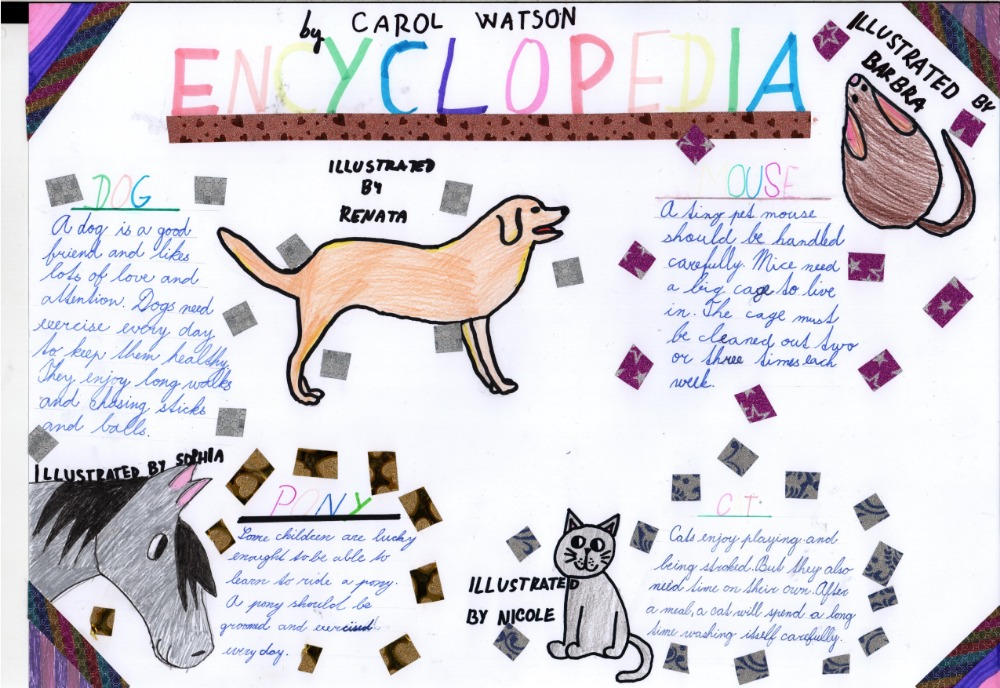 by CAROL WATSON
ENCYCLOPEDIA
ILLUSTRATED BY
BARBRA
ILLUSTRATED
BY
RENATA
DOG
A dog is a good
friend and likes
lots of love and
attention. Dogs need
exercise every day
to keep them healthy.
They enjoy long walks
and chasing sticks
and balls.
MOUSE
A tiny pet mouse
should be handled
carefully. Mice need
a big cage to live
in. The cage must
be cleaned out two
or three times each
week.
ILLUSTRATED BY SOPHIA
PONY
Some children are lucky
enought to be able to
learn to ride a pony.
A pony should be
groomd and exercised
every day.
ILLUSTRATED
BY NICOLE
C T
Cats enjoy playing and
being stroked. But they also
need time on their own. After
a meal, a cat will spend a long
time washing itself carefully.